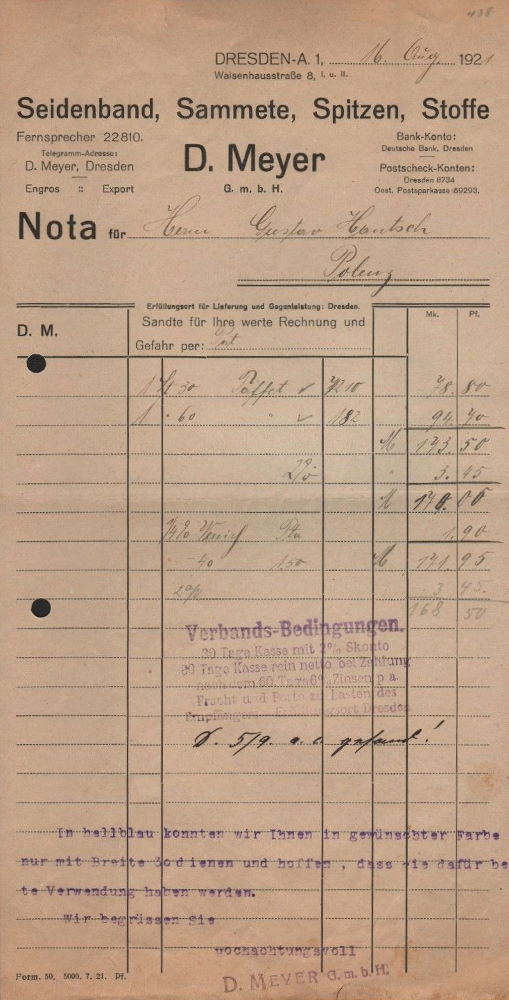 438
DRESDEN-A. 1, 16. Aug. 1921
Waisenhausstraße 8, I. u. II.
Seidenband, Sammete, Spitzen, Stoffe
Fernsprecher 22810.
Telegramm-Adresse:
D. Meyer, Dresden
Engros :: Export
D. Meyer
G. m. b. H.
Bank-Konto:
Deutsche Bank, Dresden
Postscheck-Konten:
Dresden 8734
Oest. Postsparkasse 59293.
Nota für Herrn Gustav Hantsch
Polenz
Erfüllungsort für Lieferung und Gegenleistung: Dresden.
D. M.
Sandte für Ihre werte Rechnung und
Gefahr per: Post
Mk. Pf.
30 Taffet 78. 80
1 " 60 " 182 94. 70
M 173 50
3. 45
M 170. 05
1. 90
40 1.50 M 171. 95
2% 3 45.
168 50
Verbands-Bedingungen.
30 Tage Kasse mit 2% Skonto
60 Tage Kasse rein netto bei Zahlung
nach dem 60. Tag 6% Zinsen p.a.
Fracht und Porto zu Lasten des
Empfängers. Erfüllungsort Dresden
5/9. a.c. gesandt!
In hellblau konnten wir Ihnen in gewünschter Farbe
nur mit Breite 30 dienen und hoffen, dass Sie dafür be
te Verwendung haben werden.
Wir begrüssen Sie
hochachtungsvoll
D. MEYER G.m.b.H.
Form. 50. 5000. 7. 21. Pf.